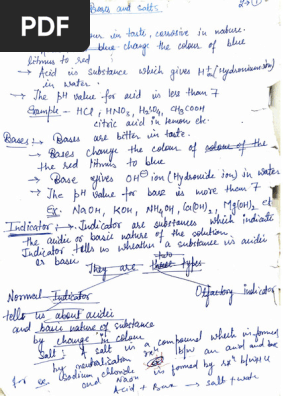 PDF
Bases and salts
in taste, corrosive in nature.
blue change the colour of blue
litmus to red
→ Acid is substance which gives H+ (Hydronium ion)
in water.
→ The pH value for acid is less than 7
Example - HCl, HNO3, H2SO4, CH3COOH
citric acid in lemon etc.
Bases :→ Bases are bitter in taste.
→ Bases change the colour of colour of the
the red litmus to blue
→ Base gives OH⊖ ion (Hydroxide ion) in water
→ The pH value for base is more than 7
Ex: NaOH, KOH, NH4OH, Ca(OH)2, Mg(OH)2 etc.
Indicator :→ Indicator are substances which indicate
the acidic or basic nature of the solution.
Indicator tells us wheather a substance is acidic
or basic
They are types
Normal Indicator
Olfactory indicator
tells us about acidic
and basic nature of substance
by change in colour
salt : A salt is a compound which is formed
by neutralisation rxn b/w an acid and base
for ex sodium chloride is formed by rxn b/w HCl
and NaOH
Acid + Base → salt + water